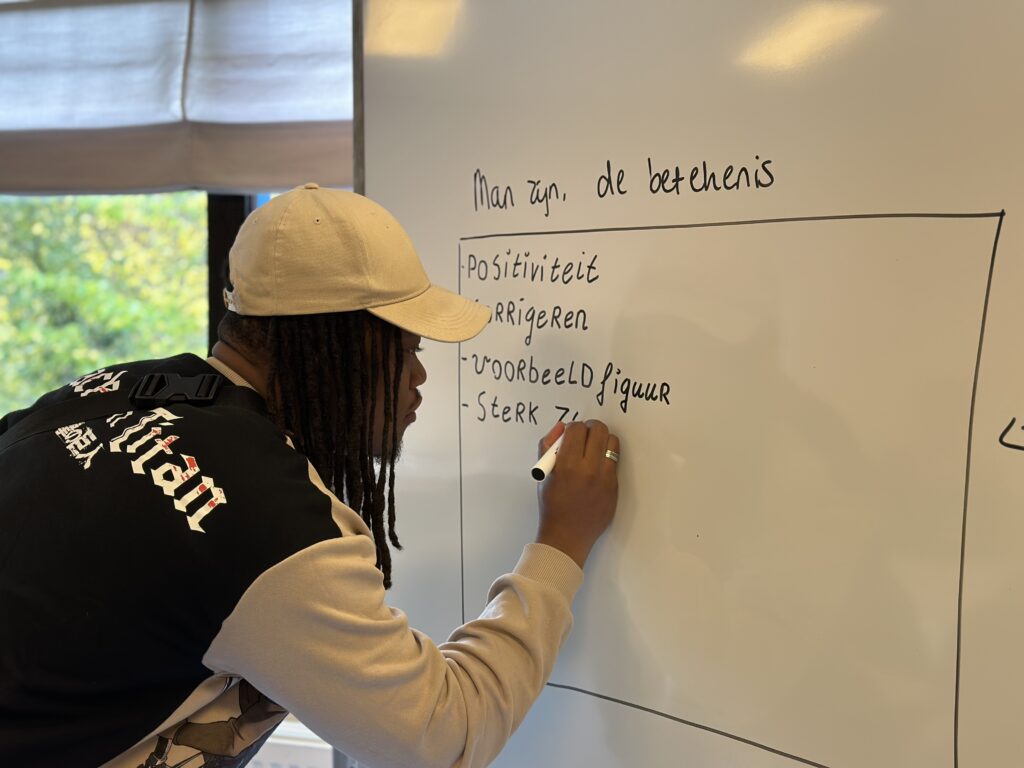 Man zijn, de betekenis
- Positiviteit
- voorbeeld figuur
- Sterk
Titan